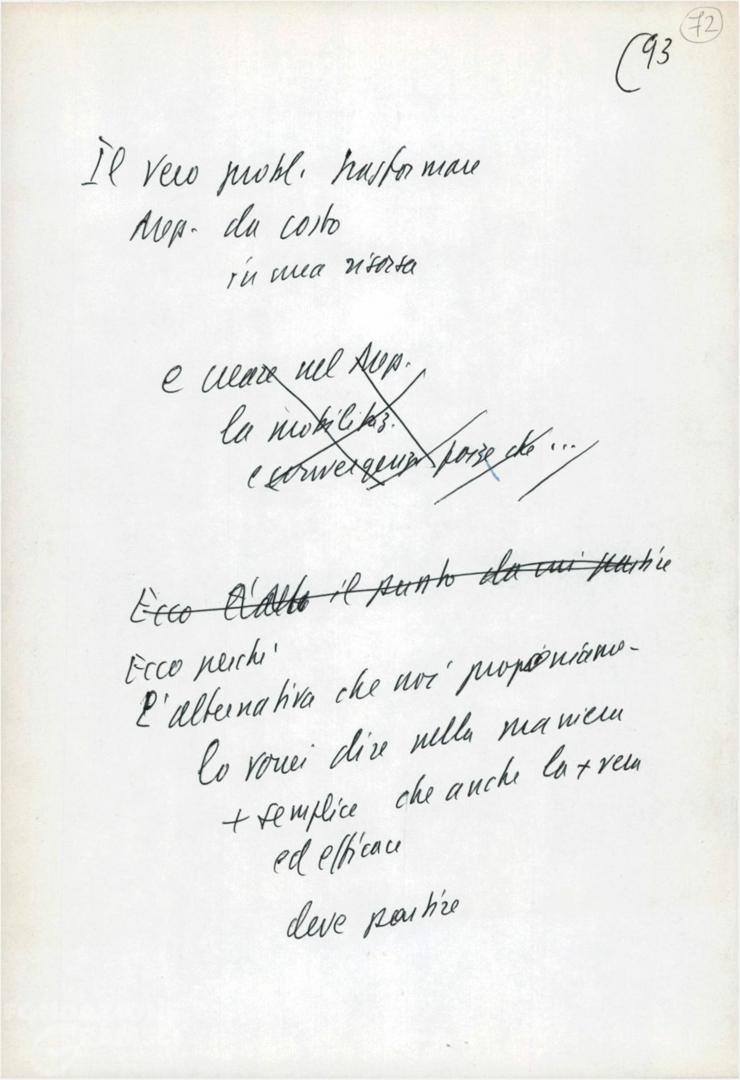 72
(93
Il vero probl. trasformare
Mep. da costo
in una risorsa
e creare nel Mep.
la mobilitaz.
e convergenza forze che ...
Ecco l'alto il punto da cui partire
Ecco perché
L'alternativa che noi proponiamo -
lo vorrei dire nella maniera
+ semplice che anche la + vera
ed efficace
deve partire